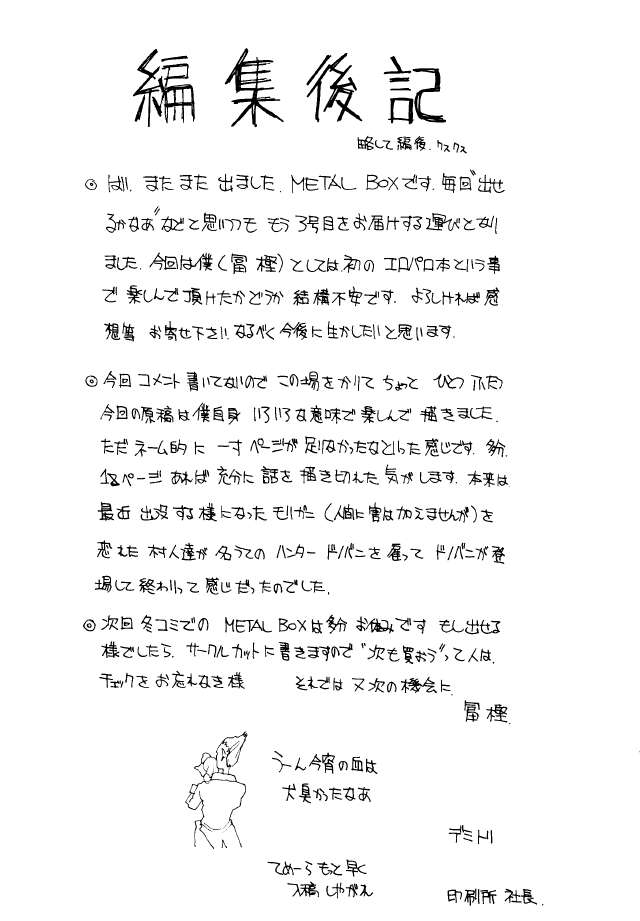 編集後記
略して編後.クスクス
◎ はい. またまた 出ました. METAL BOXです. 毎回“出せ
るかなあ”などと思いつつも もう3号目をお届けする運びとなり
ました. 今回は僕(冨樫)としては初の エロパロ本という事
で 楽しんで頂けたかどうか 結構不安です. よろしければ感
想等 お寄せ下さい. なるべく今後に生かしたいと思います.
◎今回 コメント書いてないので この場をかりて ちょっと ひとつ ふたつ
今回の原稿は僕自身 いろいろな意味で楽しんで 描きました.
ただ ネーム的に 一寸 ページが 足りなかったなといった感じです. 多分.
12ページ あれば 充分に 話を 描き切れた 気がします. 本来は
最近 出没する様になった モリガン (人間に害は加えませんが)を
恐れた 村人達が 名うての ハンター ドノバンを 雇って ドノバンが登
場して 終わりって 感じだったのでした.
◎次回 冬コミでの METAL BOXは多分 お休みです もし出せる
様でしたら. サークルカットに書きますので“次も買おう”って人は.
チェックをお忘れなき様 それでは 又次の機会に.
冨樫.
うーん今宵の血は
犬臭かったなあ
デミトリ
てめーら もっと早く
入稿しやがれ
印刷所 社長.